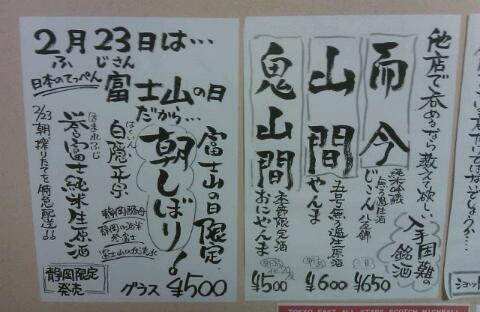 2月23日は…
ふじさん
日本のてっぺん
富士山の日
だから…
富士山の日限定
朝しぼり!
はくいん
白隠正宗
静岡酵母
静岡の酒米
誉富士
富士山の伏流水
ほまれふじ
誉富士純米生原酒
2/23朝搾りたてを緊急配送!!
静岡限定
発売
グラス ¥500
他店で呑めるなら教えて欲しい
入手困難の
銘酒
而今
じこん
八反錦
無ろ過生酒
¥650
山間
やんま
五号無ろ過生原酒
¥600
鬼山間
おにやんま
季節限定酒
¥500
ショット
TOKYO EAST ALL STARS SCOTCH HIGHBALL